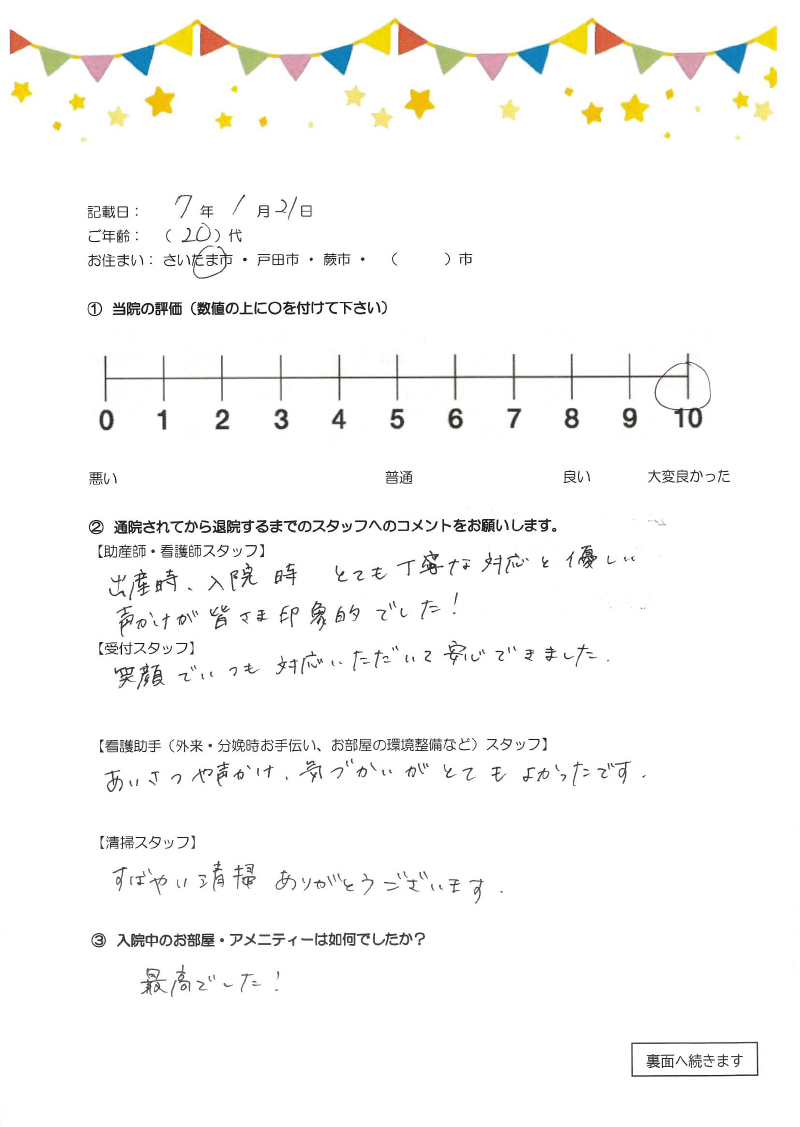 記載日： 7 年 1 月 21 日
ご年齢： （ 20 ）代
お住まい： さいたま市 ・ 戸田市 ・ 蕨市 ・ （ ）市
① 当院の評価（数値の上に〇を付けて下さい）
0 1 2 3 4 5 6 7 8 9 10
悪い 普通 良い 大変良かった
② 通院されてから退院するまでのスタッフへのコメントをお願いします。
【助産師・看護師スタッフ】
出産時、入院時 とても丁寧な対応と優しい
声かけが皆さま印象的でした！
【受付スタッフ】
笑顔でいつも対応いただいて安心できました.
【看護助手（外来・分娩時お手伝い、お部屋の環境整備など）スタッフ】
あいさつや声かけ、気づかいがとてもよかったです.
【清掃スタッフ】
すばやい清掃ありがとうございます.
③ 入院中のお部屋・アメニティーは如何でしたか？
最高でした！
裏面へ続きます